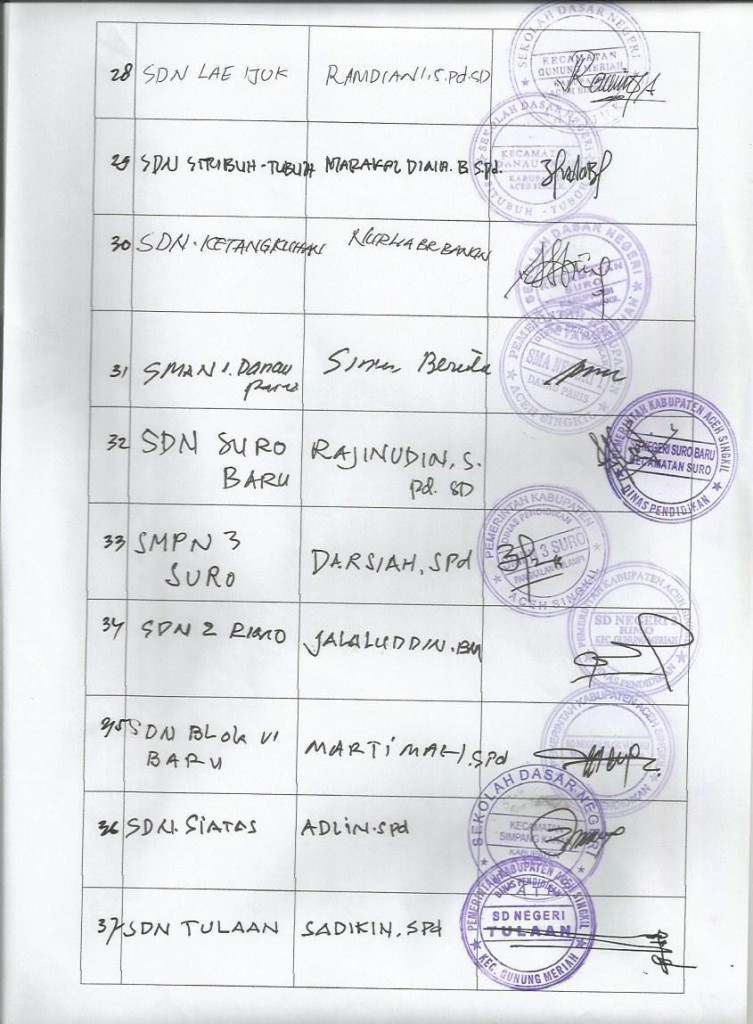 28 SDN LAE IJUK RAMDIANI, S.Pd.SD
SEKOLAH DASAR NEGERI
KECAMATAN
GUNUNG MERIAH
29 SDN SITUBUH-TUBUH B. S.Pd.
SEKOLAH DASAR NEGERI
KECAMATAN
DANAU
KABUPATEN
ACEH SINGKIL
SITUBUH - TUBUH
30 SDN. KETANGKUHAN
DASAR NEGERI
SURO
KABUPATEN
31 SMAN 1. Danau
Paris
PEMERINTAH
SMA NEGERI 1
DANAU PARIS
ACEH SINGKIL
32 SDN SURO
BARU
RAJINUDIN, S.
Pd. SD
PEMERINTAH KABUPATEN ACEH SINGKIL
NEGERI SURO BARU
KECAMATAN SURO
DINAS PENDIDIKAN
33 SMPN 3
SURO
DARSIAH, SPd
PEMERINTAH KABUPATEN
DINAS PENDIDIKAN
3 SURO
ACEH SINGKIL
34 SDN 2 RIMO JALALUDDIN. BM
PEMERINTAH KABUPATEN ACEH
SD NEGERI 2
RIMO
KEC. GUNUNG MERIAH
DINAS PENDIDIKAN
35 SDN BLOK VI
BARU
MARTI MALI, SPd
PEMERINTAH KABUPATEN ACEH SINGKIL
36 SDN. SIATAS ADLIN. SPd
SEKOLAH DASAR NEGERI
KECAMATAN
SIMPANG
37 SDN TULAAN SADIKIN, SPd
PEMERINTAH KABUPATEN ACEH SINGKIL
DINAS PENDIDIKAN
SD NEGERI
TULAAN
KEC. GUNUNG MERIAH